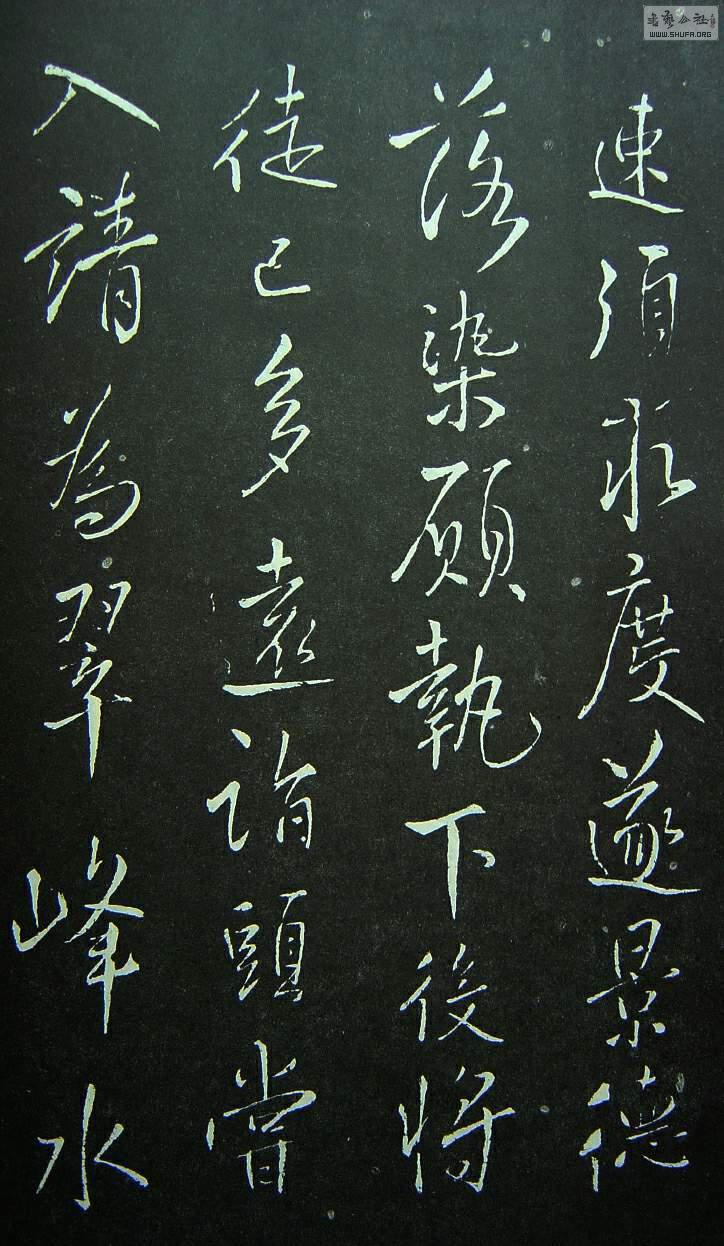 速須求度遂景德
落染願執下後將
徒已多遠詣頭嘗
入請為翠峰水
書藝公社
WWW.SHUFA.ORG